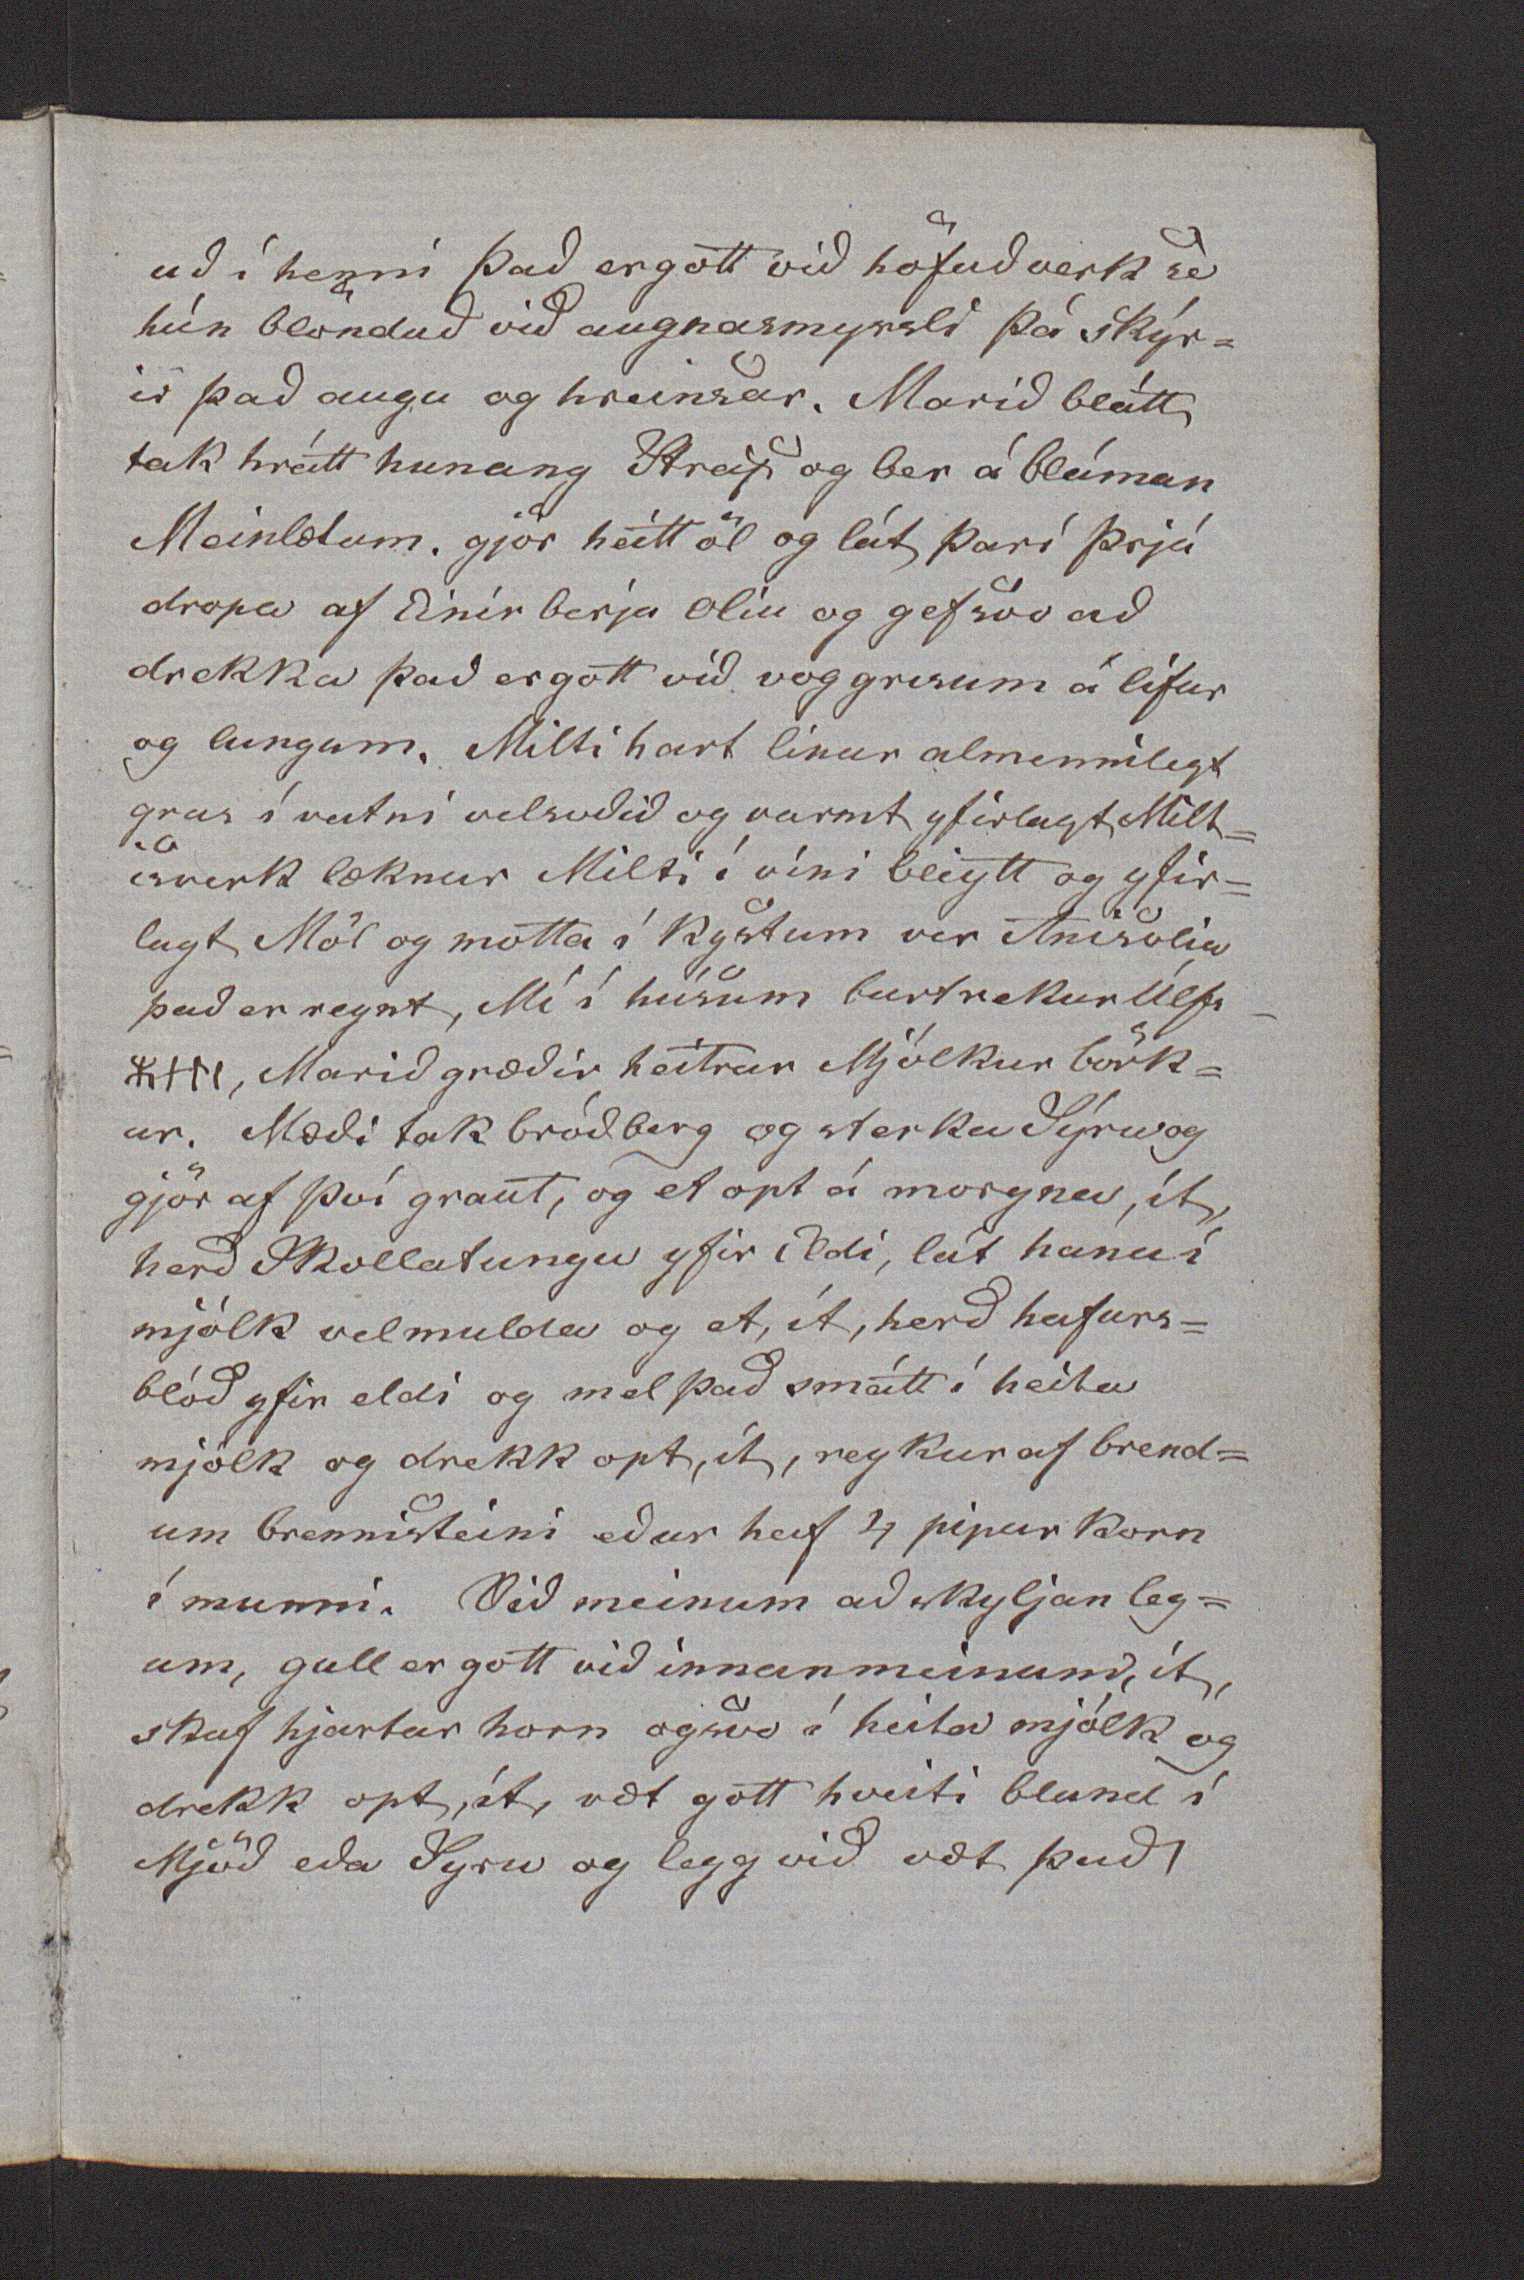 uð í henni Það er gott við höfuðverk sè
hún blönduð við augnasmyrsli þá skýr=
ir það augu og hreinsar. Marið blátt
tak hrátt hunang Strax og ber á bláman
Meinlætum. gjör heitt öl og lát þarí þrjá
dropa af Einir berja Oliu og gef svo að
drekka það er gott við voggresum á lifur
og lungum. Milti hart linur almennilegt
gras í vatni velsoðið og varmt yfirlagt Milt=
isverk læknar Milti í víni bleytt og yfir=
lagt Möl og motta í Kystum ver Anisolia
það er reynt, Mí í húsum burtrekur Úlfs
ᚼᛅᛚᛁ, Marið græðir heitrar Mjólkur börk=
ur. Mæði tak bróðberg og sterka Sýru og
gjör af því graut, og et opt á morgna, ít,
herð Skollatungu yfir Eldi, lát hana í
mjólk velmulda og et, ít, herð hafurs=
blóð yfir eldi og mel það smátt í heita
mjólk og drekk opt, ít, reykur af brend=
um brennisteini eður haf 4 pipur korn
í munni. Við meinum aðskyljanleg=
um, gull er gott við innanmeinum, ít,
skaf hjartar horn og svo í heita mjólk og
drekk opt, ít, væt gott hveiti bland í
Mjöð eða Syru og legg við væt það